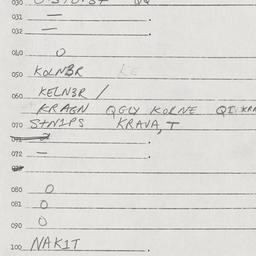 030
031 —
032 —
040 0
050 KOLN3R
060 KELN3R /
KRAGN QGLY KORNE QI KRA
070 STN1PS KRAVA, T
071 2
072 —
080 0
081 0
090 0
100 NAK1T